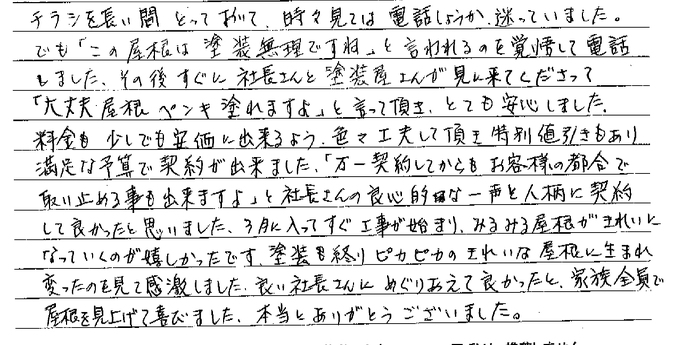 チラシを長い間 とっておいて、時々見ては 電話しようか 迷っていました。
でも「この屋根は 塗装無理ですね」と 言われるのを覚悟して 電話
しました、その後 すぐに 社長さんと 塗装屋さんが 見に来てくださって
「大丈夫 屋根 ペンキ 塗れますよ」と 言って頂き、とても 安心しました、
料金も 少しでも安価に出来るよう、色々工夫して頂き 特別値引きもあり
満足な予算で契約が出来ました、「万一契約してからも お客様の都合で
取り止める事も出来ますよ」と 社長さんの良心的な一声と人柄に契約
して良かったと思いました、3月に入ってすぐ工事が始まり、みるみる屋根がきれいに
なっていくのが嬉しかったです、塗装も終り ピカピカの きれいな 屋根に生まれ
変ったのを見て感激しました、良い社長さんに めぐりあえて良かったと、家族全員で
屋根を見上げて喜びました、本当とありがとう ございました。